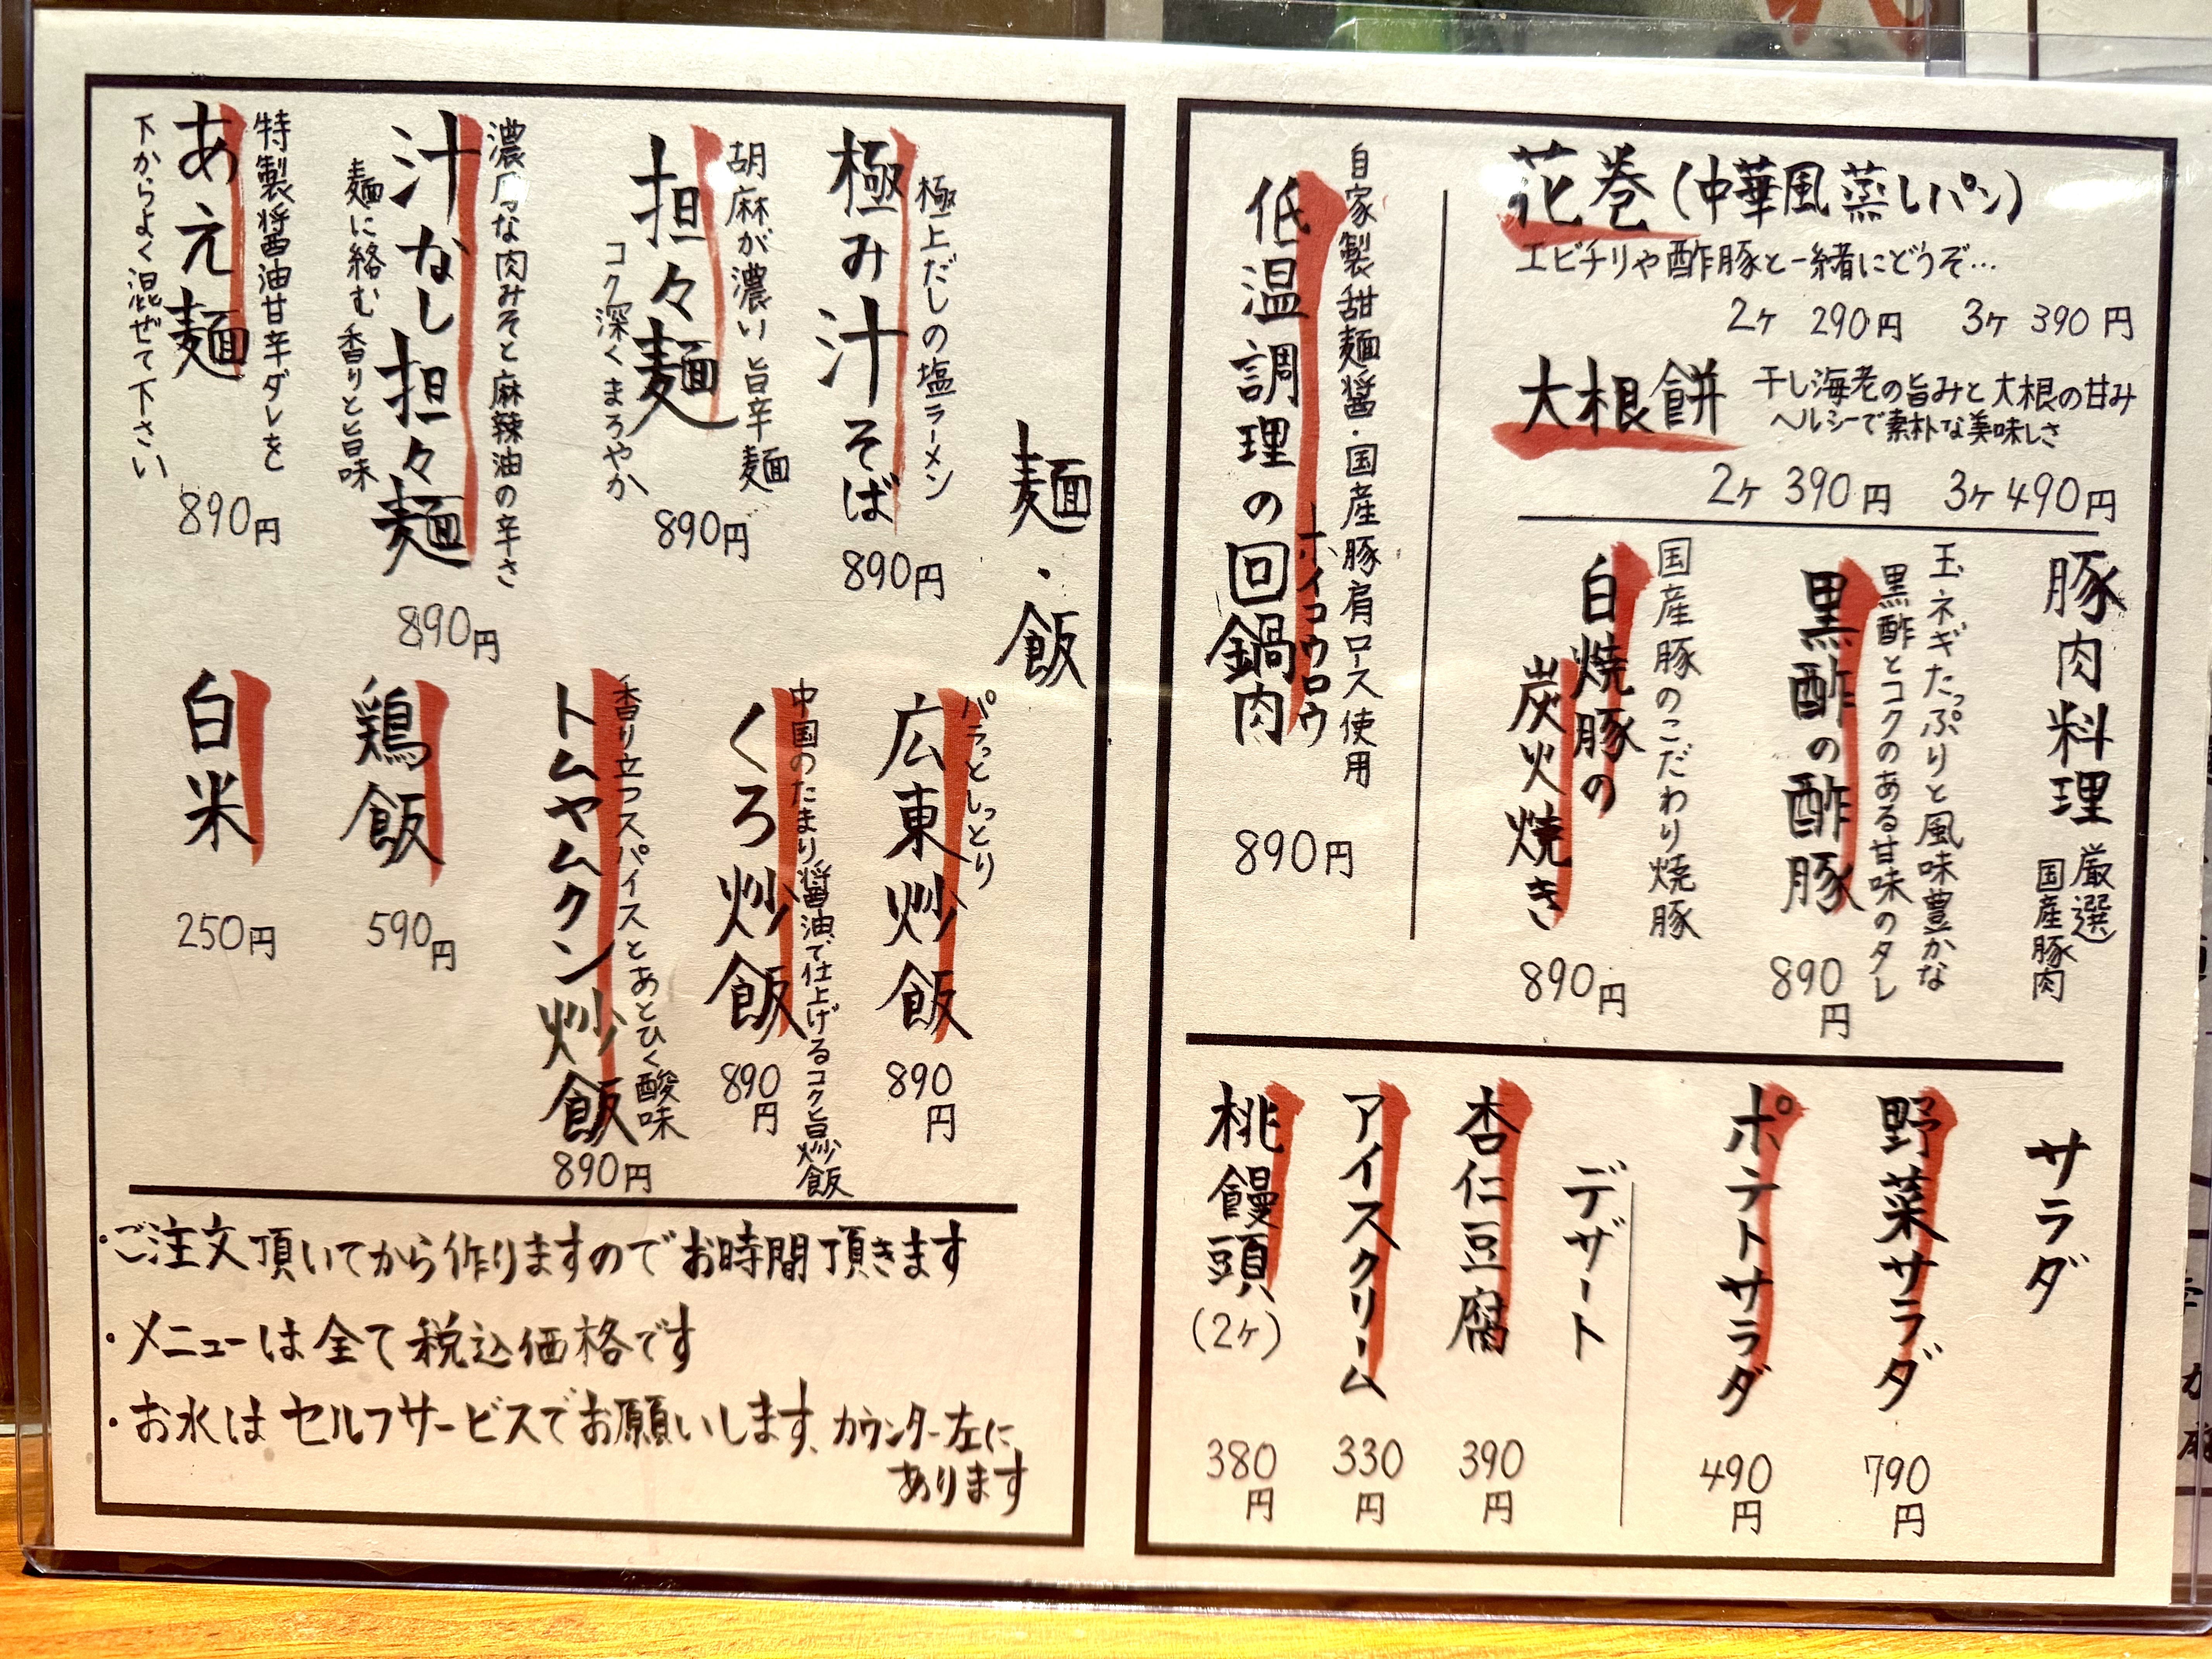 花巻(中華風蒸しパン)
エビチリや酢豚と一緒にどうぞ…
2ヶ 290円 3ヶ 390円
大根餅
干し海老の旨みと大根の甘み
ヘルシーで素朴な美味しさ
2ヶ 390円 3ヶ 490円
豚肉料理
厳選
国産豚肉
玉ネギたっぷりと風味豊かな
黒酢とコクのある甘味のタレ
黒酢の酢豚
890円
国産豚のこだわり焼豚
白焼豚の
炭火焼き
890円
自家製甜麺醤・国産豚肩ロース使用
低温調理の回鍋肉
ホイコウロウ
890円
サラダ
野菜サラダ
790円
ポテトサラダ
490円
デザート
杏仁豆腐
390円
アイスクリーム
330円
桃饅頭
(2ヶ)
380円
麺・飯
極上だしの塩ラーメン
極み汁そば
890円
胡麻が濃い旨辛麺
担々麺
コク深くまろやか
890円
濃厚な肉みそと麻辣油の辛さ
汁なし担々麺
麺に絡む香りと旨味
890円
特製醤油甘辛ダレを
あえ麺
下からよく混ぜて下さい
890円
パラっとしっとり
広東炒飯
890円
中国のたまり醤油で仕上げるコク旨炒飯
くろ炒飯
890円
香り立つスパイスとあとひく酸味
トムヤムクン炒飯
890円
鶏飯
590円
白米
250円
・ご注文頂いてから作りますのでお時間頂きます
・メニューは全て税込価格です
・お水はセルフサービスでお願いします、カウンター左に
あります